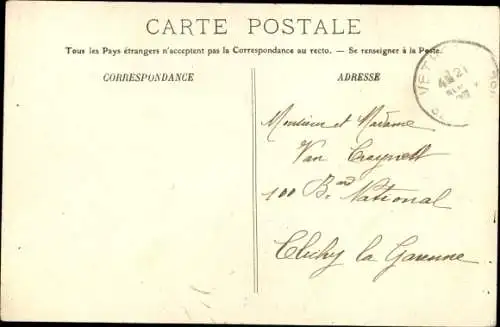 CARTE POSTALE
Tous les Pays étrangers n'acceptent pas la Correspondance au recto. — Se renseigner à la Poste.
CORRESPONDANCE
ADRESSE
Monsieur et Madame
Van
100 B.ard National
Clichy la Garenne